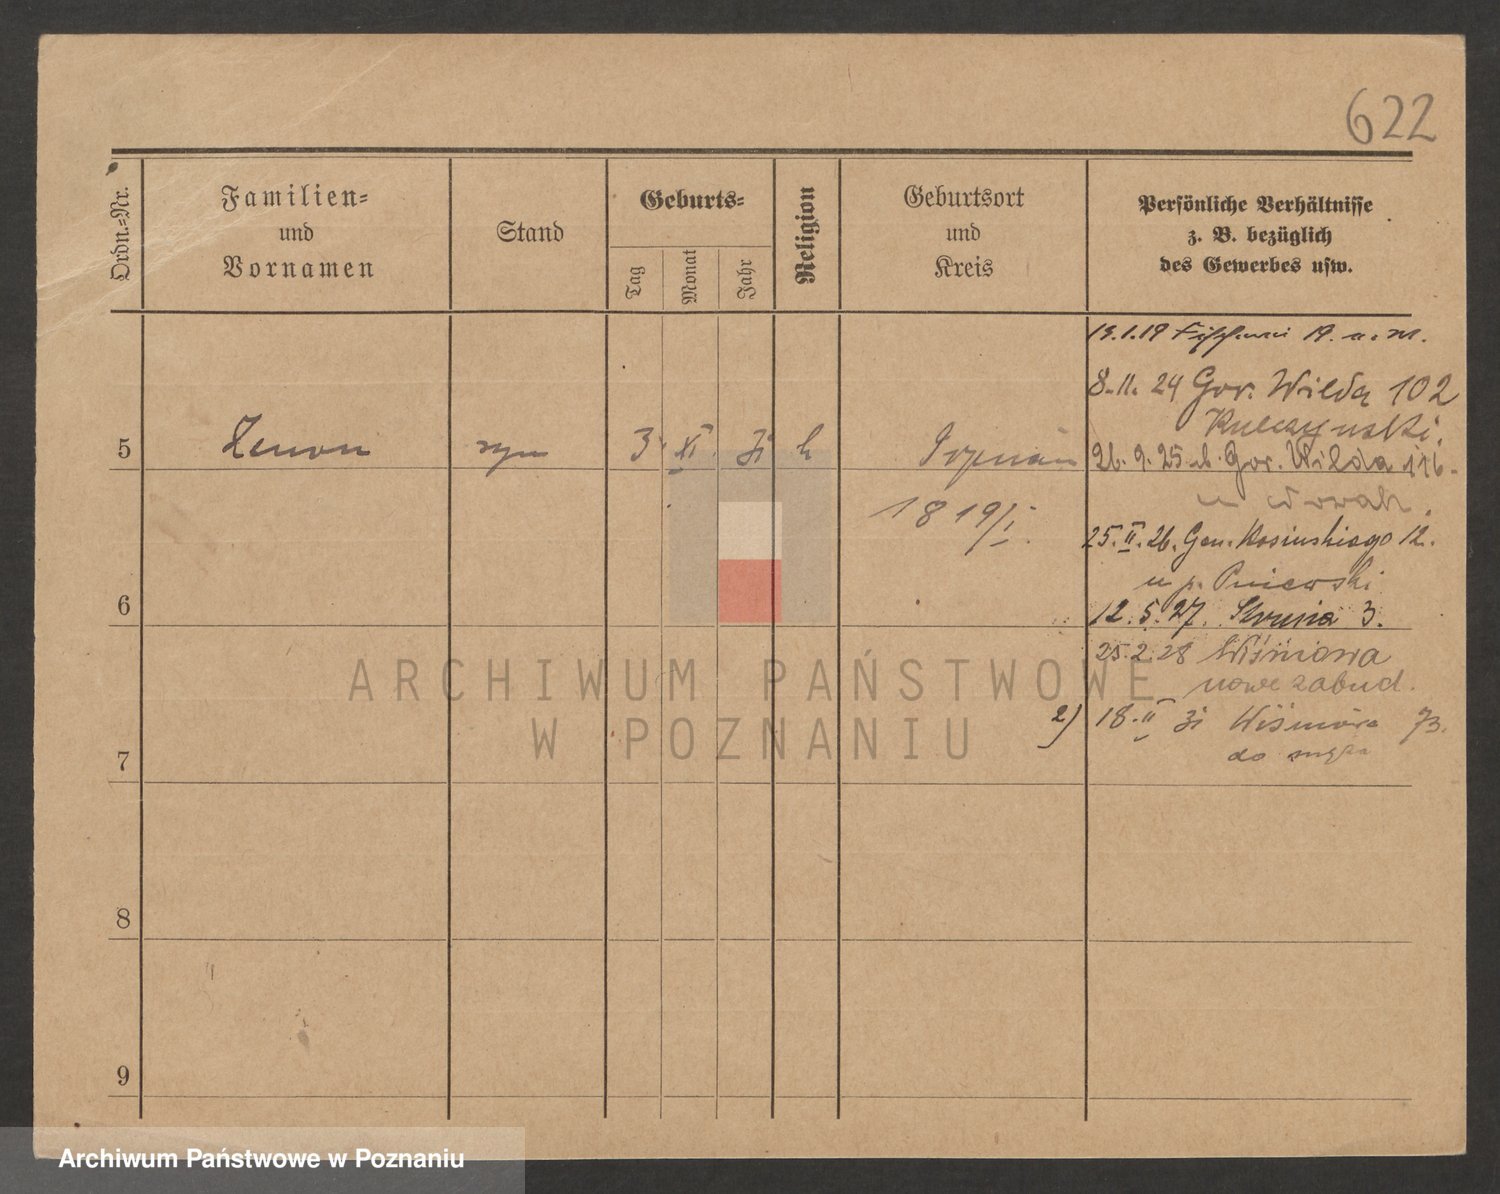 622
Ordn.-Nr.
Familien-
und
Vornamen
Stand
Geburts-
Tag
Monat
Jahr
Religion
Geburtsort
und
Kreis
Persönliche Verhältnisse
z. B. bezüglich
des Gewerbes usw.
13.1.19
8.11.24 Gor. Wilda 102
Kulczynski.
5 Zenon syn 3 XI 31 k Poznań
26.9.25 Gor. Wilda 116.
u Nowak.
18 19/I.
25.II.26. Gen. Kosinskiego 12.
u p. Pniewski
6
12.5.27. Strusia 3.
25.2.28 Wiśniowa
nowe zabud.
2) 18.II 31 Wiśniowa 73.
do męża
7
8
9
ARCHIWUM PAŃSTWOWE
W POZNANIU
Archiwum Państwowe w Poznaniu